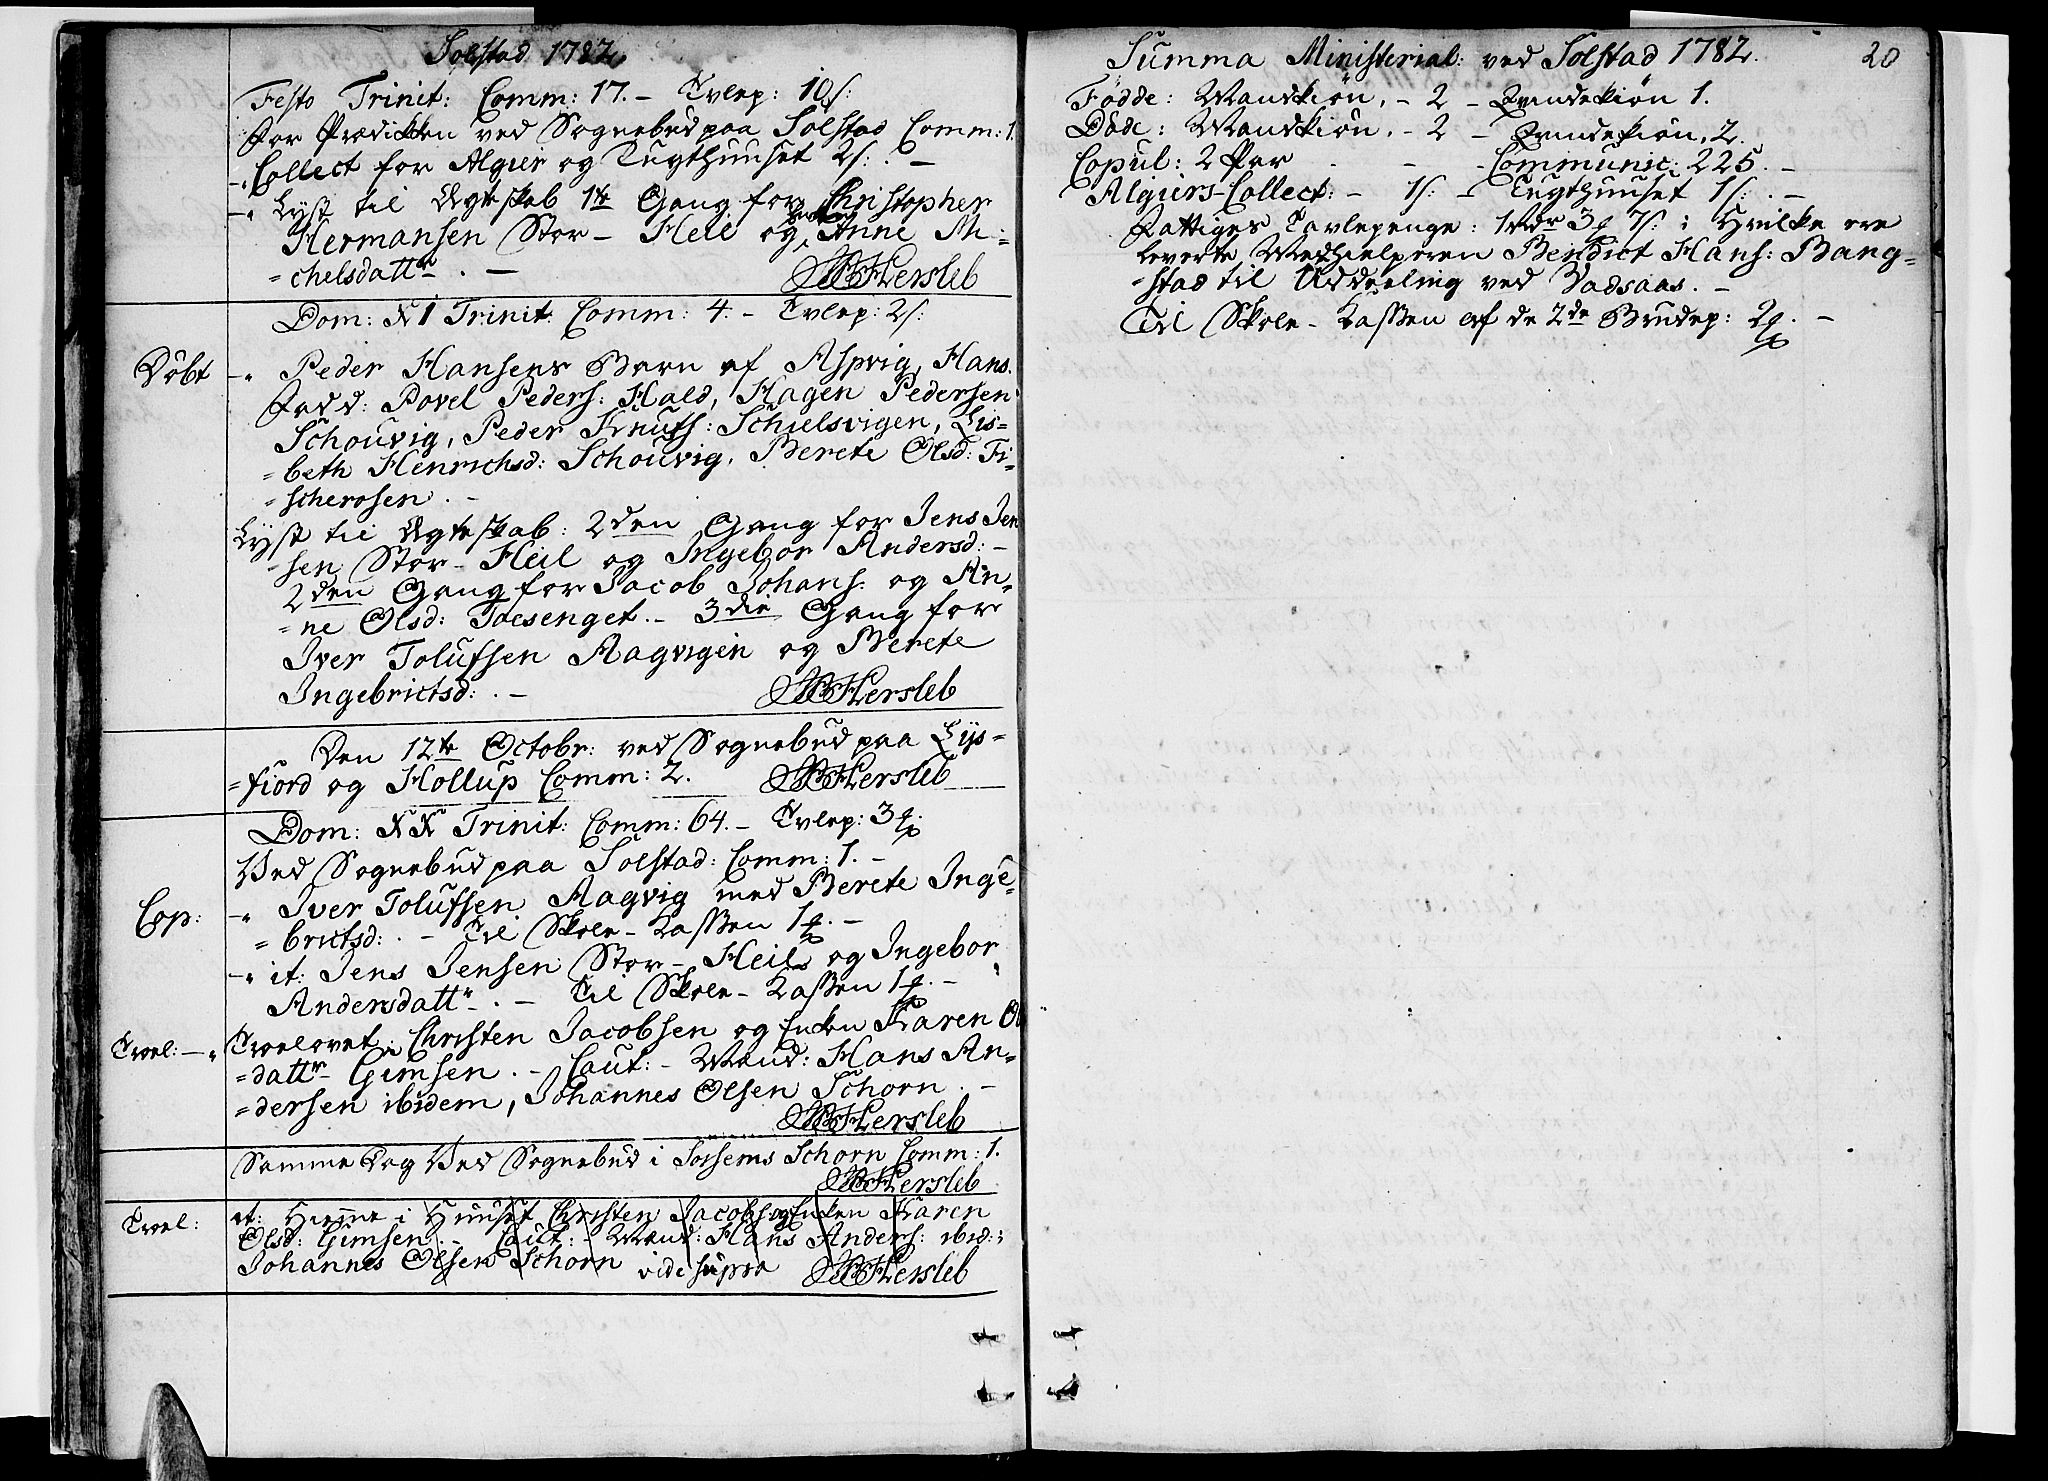 Solstad 1782.
Festo Trinit: Comm: 17. – Tvlep: 10 s:
For Prædicken ved Sognebud paa Solstad Comm: 1.
Collect for Algier og Tugthuuset 2 s: . –
Lyst til Ægteskab 1te Gang for Christopher
Hermansen Stor-Heil og Anne Mi=
=chelsdattr . – Hersleb
Dom: XI Trinit: Comm: 4. – Tvlep: 2 s:
Døbt –" Peder Hansens Barn af Aspvig, Hans.
Fadd: Povel Peders: Hald, Hagen Pedersen
Schouvig, Peder Knuts: Schielsvigen, Lis=
=beth Henrichsd: Schouvig, Berete Olsd: Fi=
=scherosen . –
Lyst til Ægteskab: 2den Gang for Jens Jen
=sen Stor-Heil og Ingebor Andersd: –
2den Gang for Jacob Johans: og An=
=ne Olsd: . – 3die Gang for
Iver Tolufsen Aagvigen og Berete
Ingebrictsd: . – Hersleb
Den 12te Octobr: ved Sognebud paa Lys=
=fiord og Hollup Comm: 2. Hersleb
Dom: XX Trinit: Comm: 64. – Tvlep: 3
Ved Sognebud paa Solstad: Comm: 1. –
Cop: –" Iver Tolufsen Aagvig med Berete Inge=
=brictsd: . – Til Skole-Kassen 1
–" it: Jens Jensen Stor-Heil og Ingebor
Andersdattr . – Til Skole-Kassen 1 . –
Troel: –" Troelovet: Christen Jacobsen og Enken Karen Ol
=dattr Gimsen . – Caut:-Mænd: Hans An=
=dersen ibidem, Johannes Olsen Schorn . –
Hersleb
Samme Dag Ved Sognebud i Schorn Comm: 1.
Hersleb
Troel: it: Hiemme i Huuset Christen Jacobs: og Enken Karen
Olsd: Gimsen . – Caut:-Mænd: Hans Anders: ibid:;
Johannes Olsen Schorn vide supra Hersleb
Summa Ministerial: ved Solstad 1782. 20
Födde: Mandkiön. – 2 – Qvindekiön 1.
Döde: Mandkiön. – 2 – Qvindekiön. 2.
Copul: 2 Par – – – Communic: 225. –
Algiers-Collect: – 1 s: – Tugthuuset 1 s: . –
Fattiges Tavlepenge: 1 Rdr 3 7 s: ; Hvilke ere
leverte Medhielperen Bendict Hans: Bang=
=stad til Uddeeling ved Vadsaas. –
Til Skole-Kassen af de 2de Brudep: 2 . –